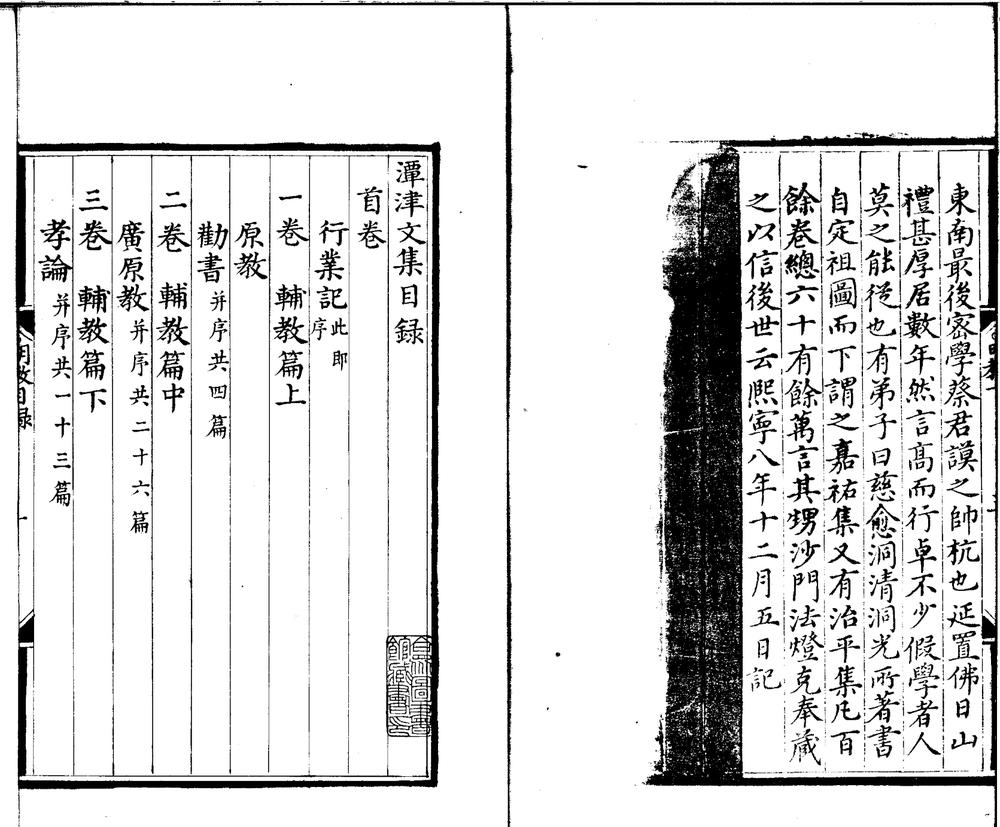 東南最後密學蔡君謨之帥杭也延置佛日山
禮甚厚居數年然言髙而行卓不少假學者人
莫之能從也有弟子曰慈愈洞清洞光所著書
自定祖圖而下謂之嘉祐集又有治平集凡百
餘卷總六十有餘萬言其甥沙門法燈克奉藏
之以信後世云熈寧八年十二月五日記
潭津文集目録
首卷
行業記此即序
一卷　輔教篇上
原教
勸書并序共四篇
二卷　輔教篇中
廣原教并序共二十六篇
三卷　輔教篇下
孝論并序共一十三篇